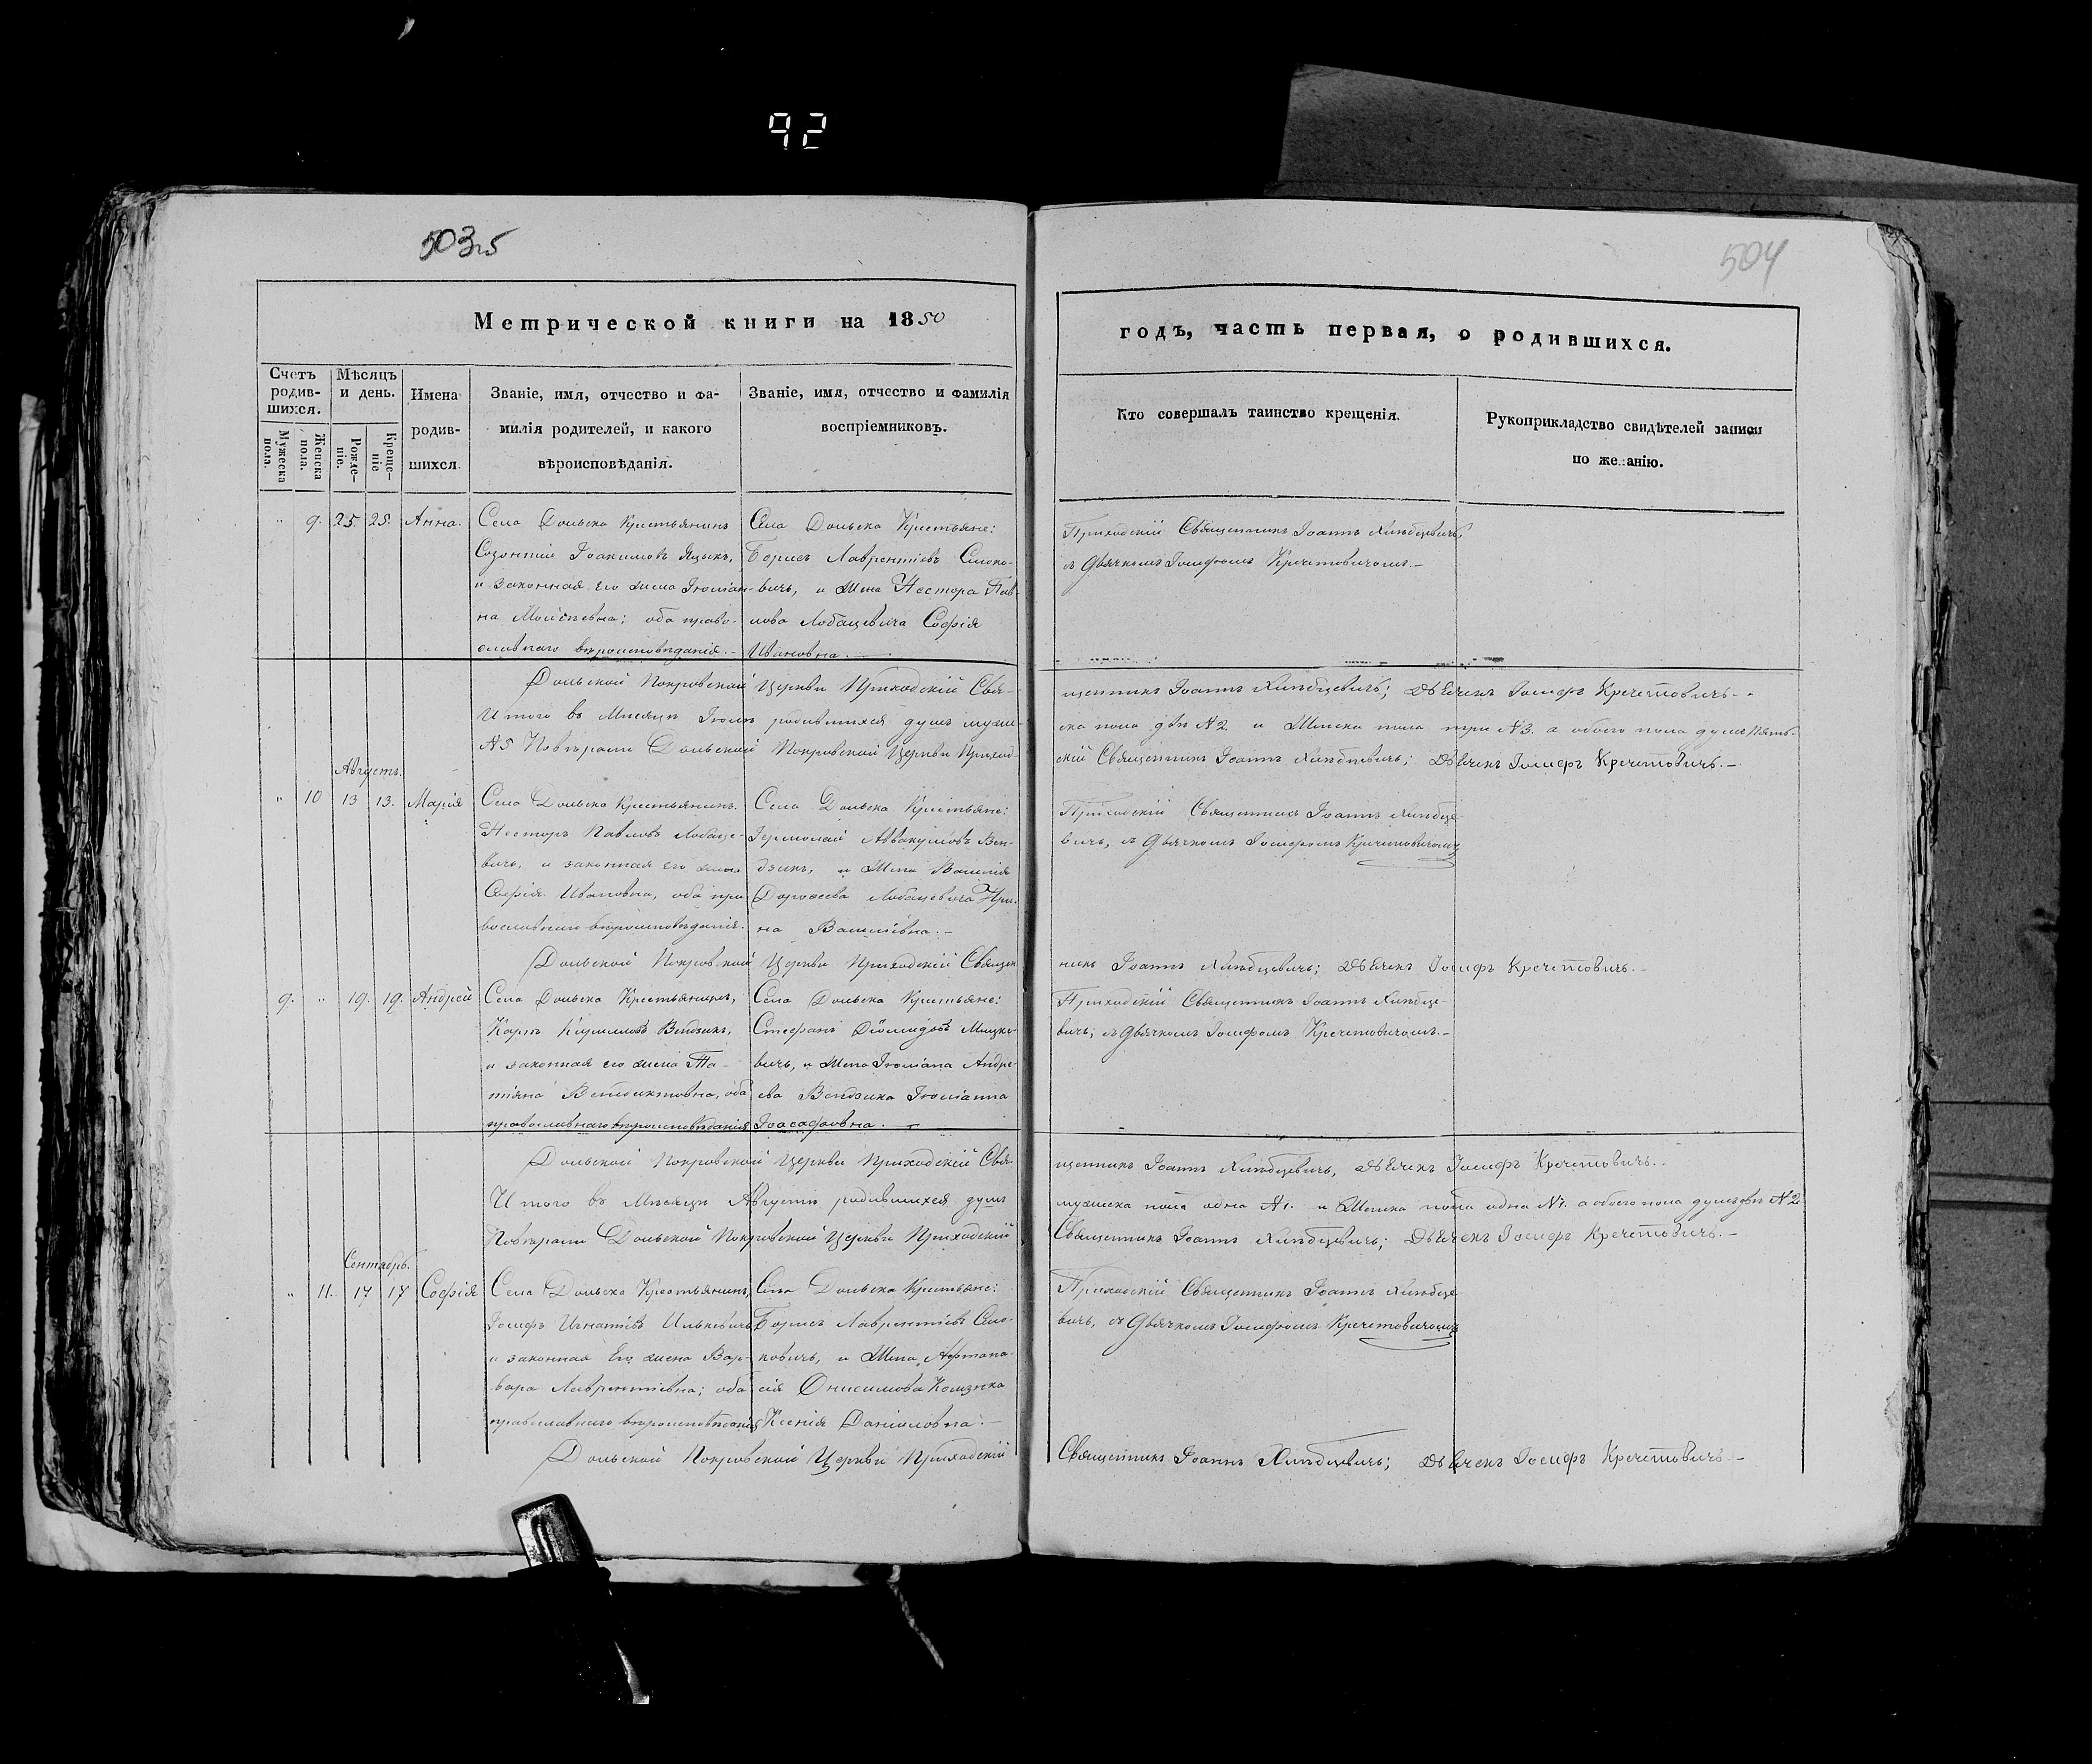 92
503
504
Метрической книги на 1850
годъ, часть первая, о родившихся.
Счетъ родившихся.
Мужеска пола.
Женска пола.
Мѣсяцъ и день.
Рожденіе.
Крещеніе
Имена родившихся.
Званіе, имя, отчество и фа-
милія родителей, и какого
вѣроисповѣданія.
Званіе, имя, отчество и фамилія
воспріемниковъ.
Кто совершалъ таинство крещенія.
Рукоприкладство свидѣтелей записи
по желанію.
" 9. 25. 25. Анна.
Села Дольска Крестьянинъ
Созонтій Іоакимовъ Яцыкъ,
и законная Его жена Іюліан-
на Моисѣевна; оба право-
славнаго вѣроисповѣданія.-
Села Дольска Крестьяне:
Борисъ Лаврентіевъ Смоко-
вичъ, и Жена Нестора Пав-
лова Лобацевича Софія
Ивановна.-
Приходскій Священникъ Іоаннъ Хлѣбцевичъ,
съ Дьячкомъ Іосифомъ Кречетовичомъ.-
Дольской Покровской Церкви Приходскій Свя-
щенникъ Іоаннъ Хлѣбцевичъ; Дьячекъ Іосифъ Кречетовичъ.-
Итого въ Мѣсяцѣ Іюлѣ родившихся душъ муже-
ска пола двѣ №2. и Женска пола три №3. а обоего пола душъ пять.
№5 Повѣряли Дольской Покровской Церкви Приход-
скій Священникъ Іоаннъ Хлѣбцевичъ; Дьячекъ Іосифъ Кречетовичъ.-
Августъ.
" 10 13 13. Марія
Села Дольска Крестьянинъ.
Несторъ Павловъ Лобаце-
вичъ, и законная Его жена
Софія Ивановна, оба пра-
вославнаго вѣроисповѣданія.
Села Дольска Крестьяне:
Аввакумовъ Вен-
дзикъ, и Жена Василія
Дороѳеева Лобацевича Ири-
на Василіевна.-
Приходскій Священникъ Іоаннъ Хлѣбце-
вичъ, съ Дьячкомъ Іосифомъ Кречетовичомъ
Дольской Покровской Церкви Приходскій Священ
никъ Іоаннъ Хлѣбцевичъ; Дьячекъ Іосифъ Кречетовичъ.-
9. " 19. 19. Андрей
Села Дольска Крестьянинъ,
Карпъ Кирилловъ Вендзикъ,
и законная его жена Та-
тіяна Венедиктовна, оба
православнаго вѣроисповѣданія
Села Дольска Крестьяне:
Стефанъ Діомидовъ Мицке-
вичъ, и Жена Андре-
ева Вендзика Іюліанна
Іоасафовна.-
Приходскій Священникъ Іоаннъ Хлѣбце-
вичъ; съ Дьячкомъ Іосифомъ Кречетовичомъ.-
Дольской Покровской Церкви Приходскій Свя-
щенникъ Іоаннъ Хлѣбцевичъ, Дьячекъ Іосифъ Кречетовичъ.-
Итого въ Мѣсяцѣ Августѣ родившихся душъ
мужеска пола одна №1. и Женска пола одна №1. а обоего пола душъ двѣ №2
Повѣряли Дольской Покровской Церкви Приходскій
Священникъ Іоаннъ Хлѣбцевичъ; Дьячекъ Іосифъ Кречетовичъ.-
Сентябрь.
" 11. 17 17 Софія
Села Дольска Крестьянинъ,
Іосифъ Игнатіевъ Илькевичъ
и законная Его жена Вар-
вара Лаврентіевна; оба
православнаго вѣроисповѣданія
Села Дольска Крестьяне:
Борисъ Лаврентіевъ Смо-
ковичъ, и Жена Афтана-
сія Онисимова
Ксенія Даниловна.-
Приходскій Священникъ Іоаннъ Хлѣбце-
вичъ, съ Дьячкомъ Іосифомъ Кречетовичомъ
Дольской Покровской Церкви Приходскій
Священникъ Іоаннъ Хлѣбцевичъ; Дьячекъ Іосифъ Кречетовичъ.-